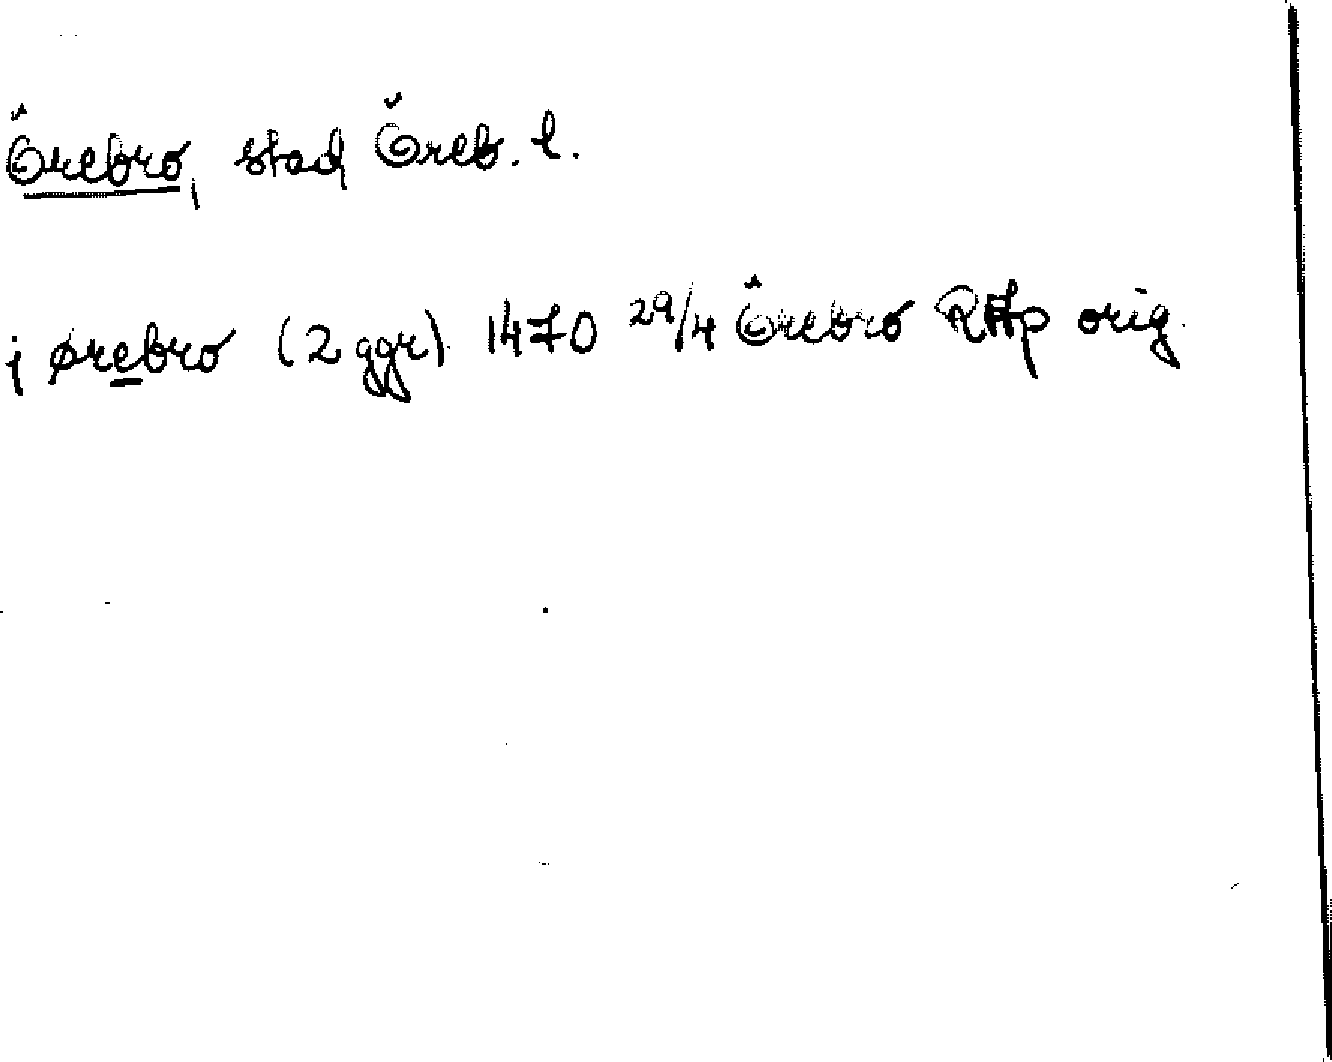 Örebro, stad Öreb. l.
j ørebro (2 ggr) 1470 29/4 Örebro RAp orig.